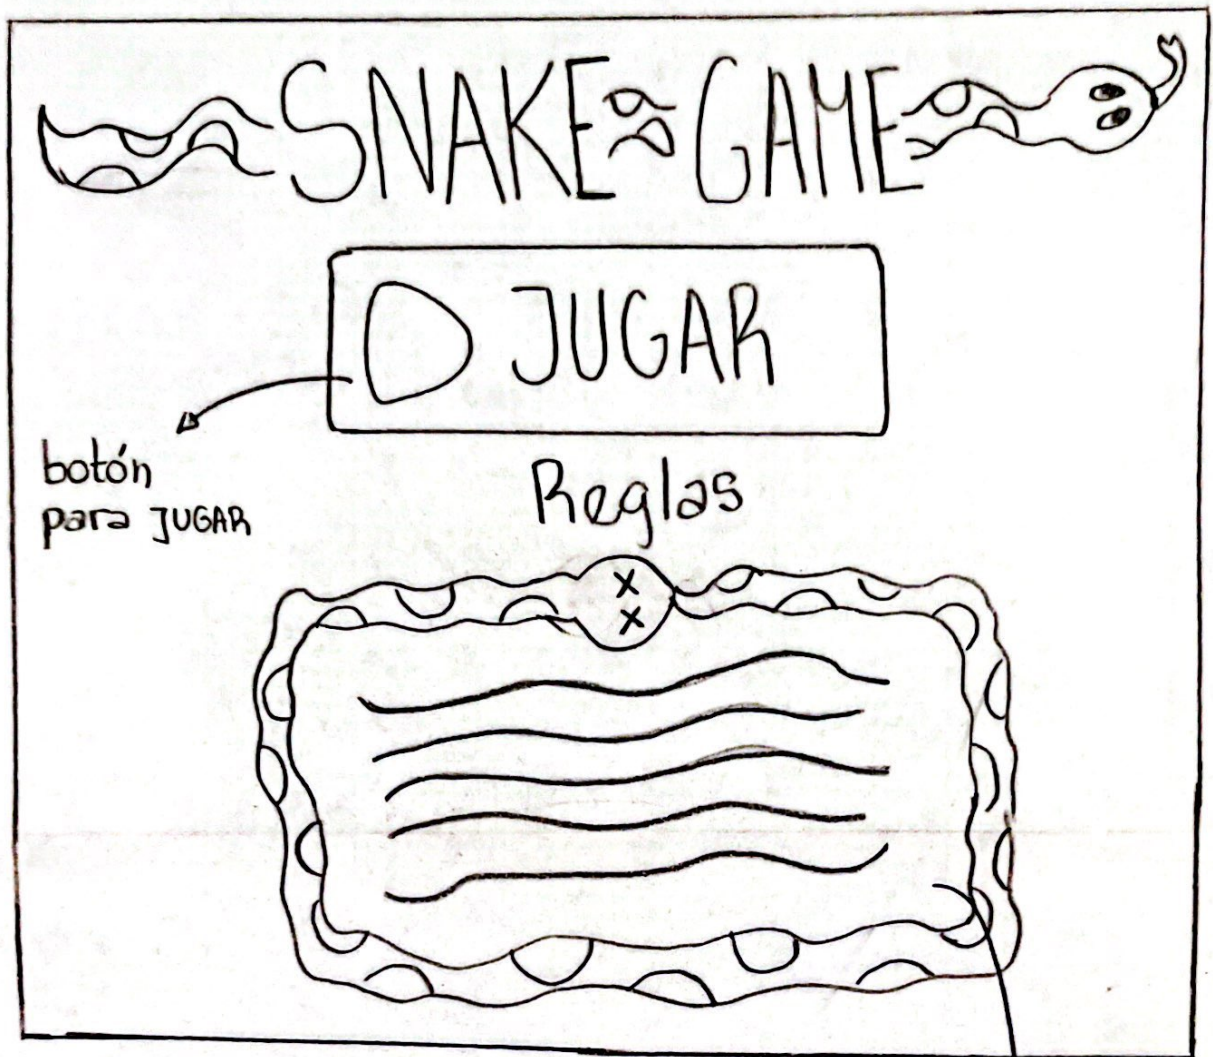 SNAKE GAME
JUGAR
botón
para JUGAR
Reglas